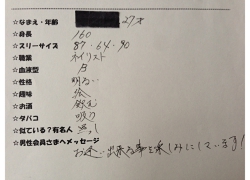 ☆なまえ・年齢 27才
☆身長 160
☆スリーサイズ 87・64・90
☆職業 ネイリスト
☆血液型 B
☆性格 明るい
☆趣味
☆お酒 飲む
☆タバコ 吸う
☆似ている?有名人 無し
☆男性会員さまへメッセージ
お逢い出来る事を楽しみにしています!